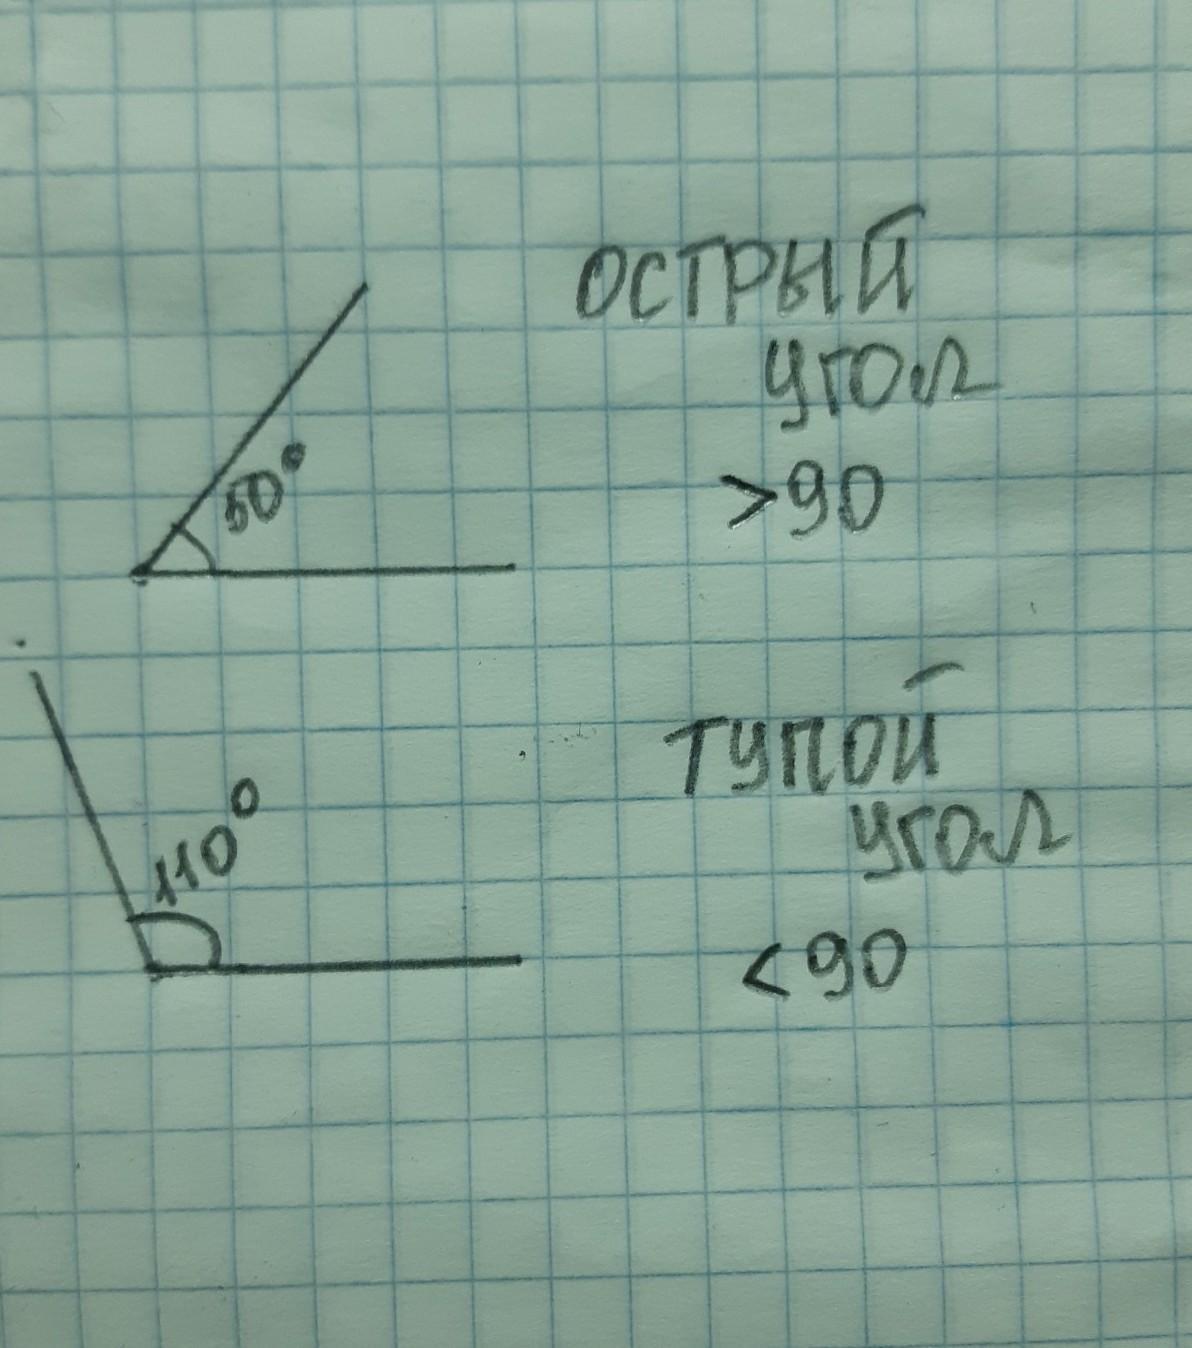 ОСТРЫЙ
УГОЛ
50°
>90
ТУПОЙ
110°
УГОЛ
<90